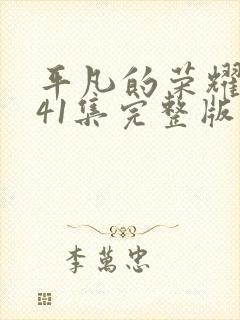 平凡的荣耀
41集完整版
李萬忠